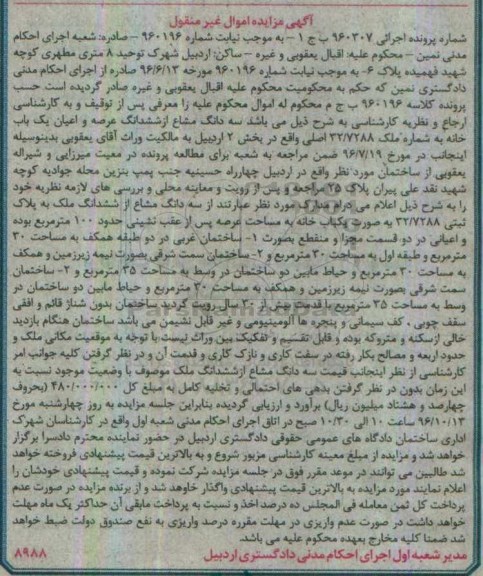 آگهی مزایده اموال غیر منقول
شماره پرونده اجرائی ۹۶۰۳۰۷ ب ج ۱ – به موجب نیابت شماره ۹۶۰۱۹۶ – صادره: شعبه اجرای احکام
مدنی نمین – محکوم علیه: اقبال یعقوبی و غیره – ساکن: اردبیل شهرک توحید ۸ متری مطهری کوچه
شهید فهمیده پلاک ۶- به موجب نیابت شماره ۹۶۰۱۹۶ مورخه ۹۶/۶/۱۳ صادره از اجرای احکام مدنی
دادگستری نمین که حکم به محکومیت محکوم علیه اقبال یعقوبی و غیره صادر گردیده است حسب
پرونده کلاسه ۹۶۰۱۹۶ ب ج م محکوم له اموال محکوم علیه را معرفی پس از توقیف و به کارشناسی
ارجاع و نظریه کارشناسی به شرح ذیل می باشد سه دانگ مشاع ازششدانگ عرصه و اعیان یک باب
خانه به شماره ملک ۳۲/۷۲۸۸ اصلی واقع در بخش ۲ اردبیل به مالکیت وراث آقای یعقوبی بدینوسیله
اینجانب در مورخ ۹۶/۷/۱۹ ضمن مراجعه به شعبه برای مطالعه پرونده در معیت میرزایی و شیراله
یعقوبی از ساختمان مورد نظر واقع در اردبیل چهارراه حسینیه جنب پمپ بنزین محله جوادیه کوچه
شهید نقد علی پیران پلاک ۲۵ مراجعه و پس از رویت و معاینه محلی و بررسی های لازمه نظریه خود
را به شرح ذیل اعلام می درام مدارک مورد نظر عبارتند از سه دانگ مشاع از ششدانگ ملک به پلاک
ثبتی ۳۲/۷۲۸۸ به صورت یکباب خانه به مساحت عرصه پس از عقب نشینی حدود ۱۰۰ مترمربع بوده
و اعیانی در دو قسمت مجزا و منقطع بصورت ۱- ساختمان غربی در دو طبقه همکف به مساحت ۳۰
مترمربع و طبقه اول به مساحت ۳۰ مترمربع و ۲- ساختمان سمت شرقی بصورت نیمه زیرزمین و همکف
به مساحت ۳۰ مترمربع و حیاط مابین دو ساختمان در وسط به مساحت ۳۵ مترمربع و ۲- ساختمان
سمت شرقی بصورت نیمه زیرزمین و همکف به مساحت ۳۰ مترمربع و حیاط مابین دو ساختمان در
وسط به مساحت ۳۵ مترمربع با قدمت بیش از ۳۰ سال رویت گردید ساختمان بدون شناژ قائم و افقی
سقف چوبی ، کف سیمانی و پنجره ها آلومینیومی و غیر قابل نشیمن می باشد ساختمان هنگام بازدید
خالی ازسکنه و متروکه بوده و قابل تقسیم و تفکیک بین وراث نیست با توجه به موقعیت مکانی ملک و
حدود اربعه و مصالح بکار رفته در سفت کاری و نازک کاری و قدمت آن و در نظر گرفتن کلیه جوانب امر
کارشناسی از نظر اینجانب قیمت سه دانگ مشاع ازششدانگ ملک موصوف با وضعیت موجود نسبت به
این زمان بدون در نظر گرفتن بدهی های احتمالی و تخلیه کامل به مبلغ کل ۴۸۰/۰۰۰/۰۰۰ (بحروف
چهارصد و هشتاد میلیون ریال) برآورد و ارزیابی گردیده بنابراین جلسه مزایده به روز چهارشنبه مورخ
۹۶/۱۰/۱۳ ساعت ۱۰ الی ۱۰/۳۰ صبح در اتاق اجرای احکام مدنی شعبه اول واقع در کارشناسان شهرک
اداری ساختمان دادگاه های عمومی حقوقی دادگستری اردبیل در حضور نماینده محترم دادسرا برگزار
خواهد شد و مزایده از مبلغ معینه کارشناسی مزبور شروع و به بالاترین قیمت پیشنهادی فروخته خواهد
شد طالبین می توانند در موعد مقرر فوق در جلسه مزایده شرکت نموده و قیمت پیشنهادی خودشان را
اعلام نمایند مورد مزایده به بالاترین قیمت پیشنهادی واگذار خاوهد شد و از برنده مزایده در صورت عدم
پرداخت کل ثمن معامله فی المجلس ده درصد اخذ و نسبت به پرداخت مابقی آن حداکثر یک ماه مهلت
خواهد داشت در صورت عدم واریزی در مهلت مقرره درصد واریزی به نفع صندوق دولت ضبط خواهد
شد ضمنا کلیه مخارج بعهده محکوم علیه می باشد.
مدیر شعبه اول اجرای احکام مدنی دادگستری اردبیل ۸۹۸۸